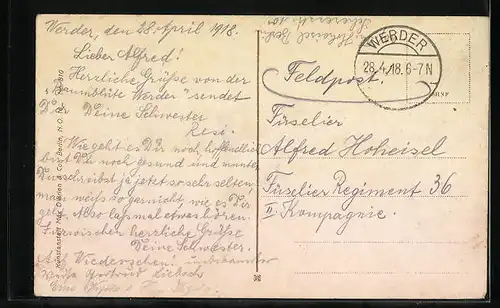 Werder, den 28. April 1918.
Lieber Alfred!
Herrliche Grüße von der
„Baumblüte Werder" sendet
Dir Deine Schwester
Resi.
Wie geht es Dir noch, hoffentlich
bist Du noch gesund und munter.
Du schreibst ja jetzt so sehr selten
man weiß so gar nicht wie es Dir
geht. Also laß mal etwas hören.
Inzwischen herzliche Grüße
Deine Schwester.
Auf Wiedersehen! unbekannter
Weise Gertrud Liebach
WERDER
28.4.18.6-7N
Feldpost.
Füselier
Alfred Hoheisel
Füselier Regiment 36
II. Kompagnie.
Berlin, N.O.